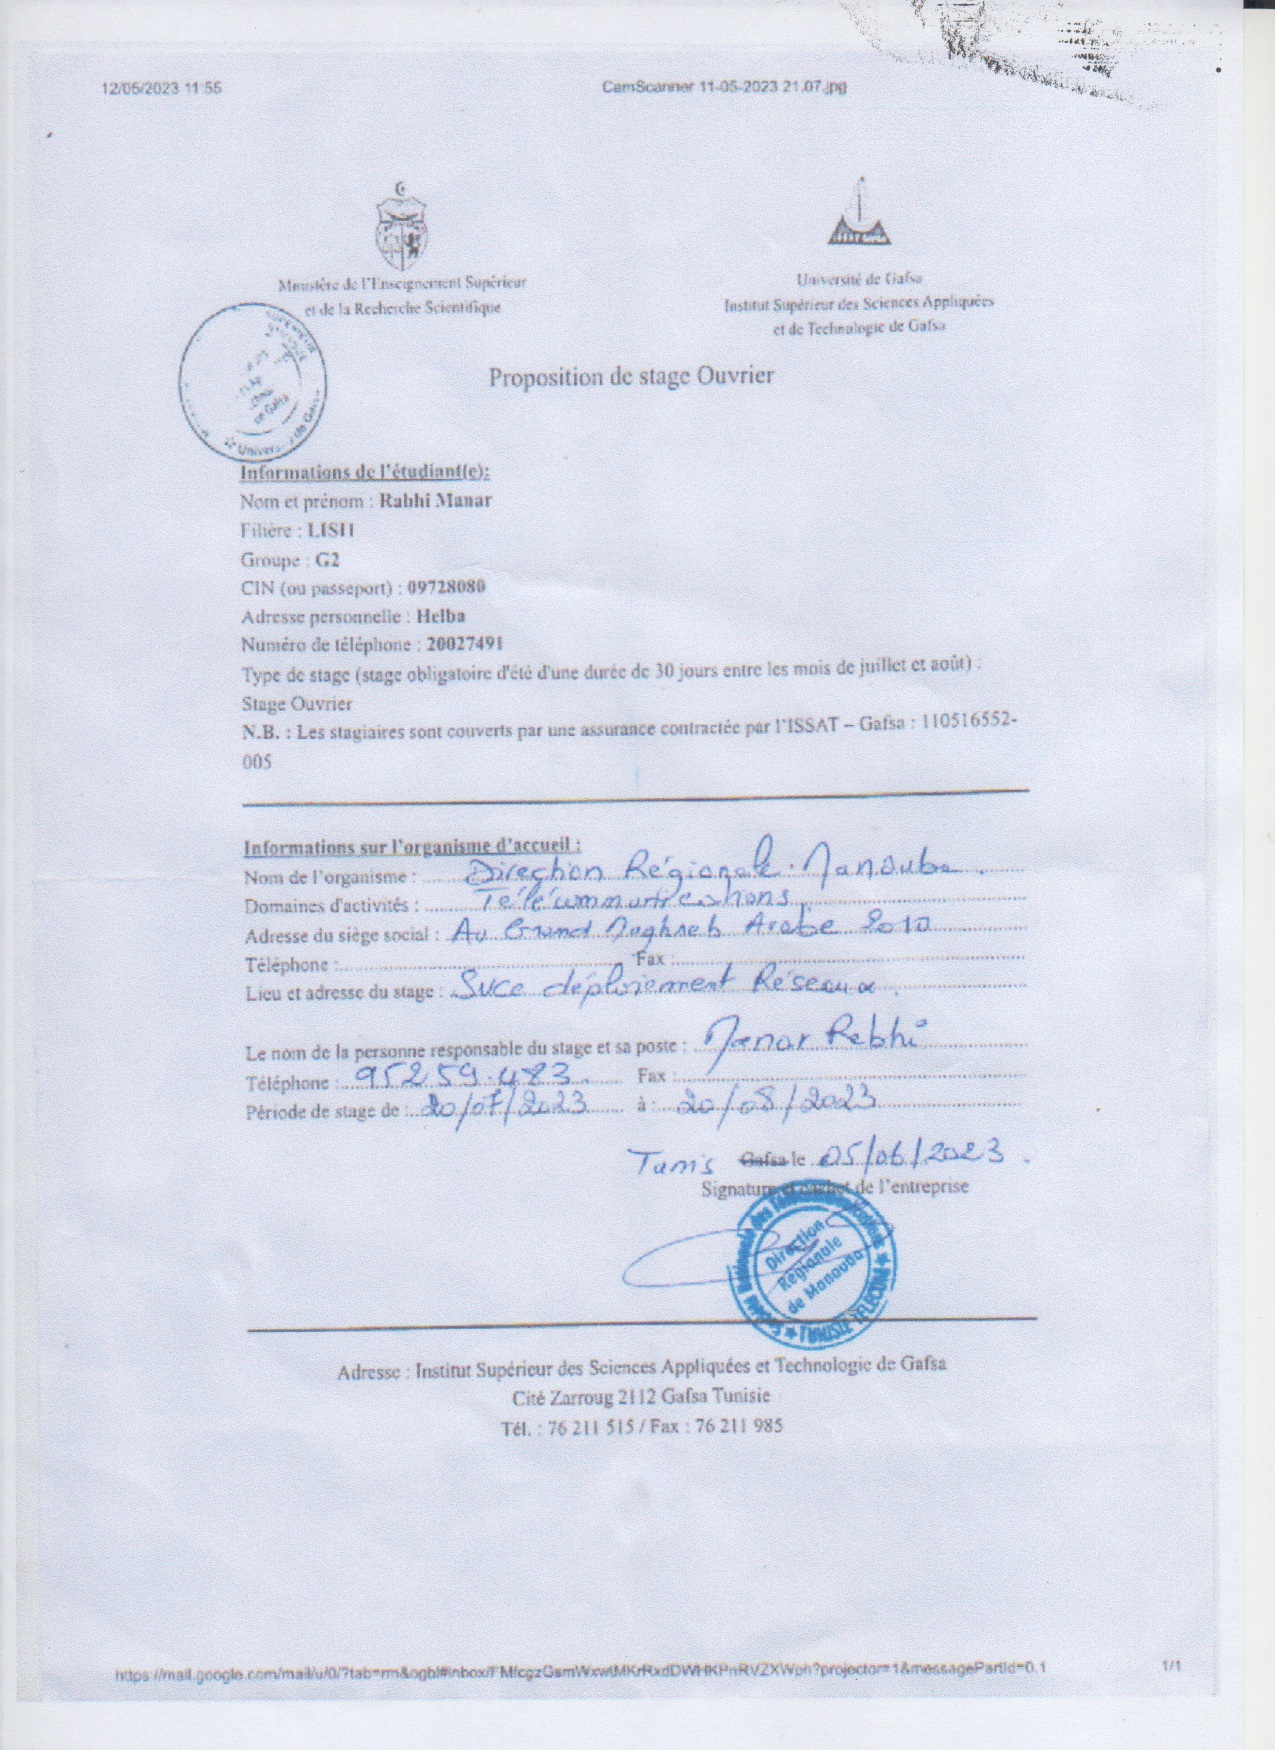 12/05/2023 11:55
CamScanner 11-05-2023 21.07.jpg
Ministère de l'Enseignement Supérieur
et de la Recherche Scientifique
ISSAT Gafsa
Université de Gafsa
Institut Supérieur des Sciences Appliquées
et de Technologie de Gafsa
Proposition de stage Ouvrier
de Gafsa
Informations de l'étudiant(e):
Nom et prénom : Rabhi Manar
Filière : LISI1
Groupe : G2
CIN (ou passeport) : 09728080
Adresse personnelle : Helba
Numéro de téléphone : 20027491
Type de stage (stage obligatoire d'été d'une durée de 30 jours entre les mois de juillet et août) :
Stage Ouvrier
N.B. : Les stagiaires sont couverts par une assurance contractée par l'ISSAT – Gafsa : 110516552-
005
Informations sur l'organisme d'accueil :
Nom de l'organisme : Direction Régionale Manouba.
Domaines d'activités : Télécommunications
Adresse du siège social : Av Grand Maghreb Arabe 2010
Téléphone : Fax :
Lieu et adresse du stage : Svce déploiement Réseaux.
Le nom de la personne responsable du stage et sa poste : Manar Rebhi
Téléphone : 95259.483 Fax :
Période de stage de : 20/07/2023 à : 20/08/2023
Tunis Gafsa le 05/06/2023.
Signature et cachet de l'entreprise
Direction
Régionale
de Manouba
Société Nationale des Télécommunications
★ TUNISIE TELECOM ★
Adresse : Institut Supérieur des Sciences Appliquées et Technologie de Gafsa
Cité Zarroug 2112 Gafsa Tunisie
Tél. : 76 211 515 / Fax : 76 211 985
1/1